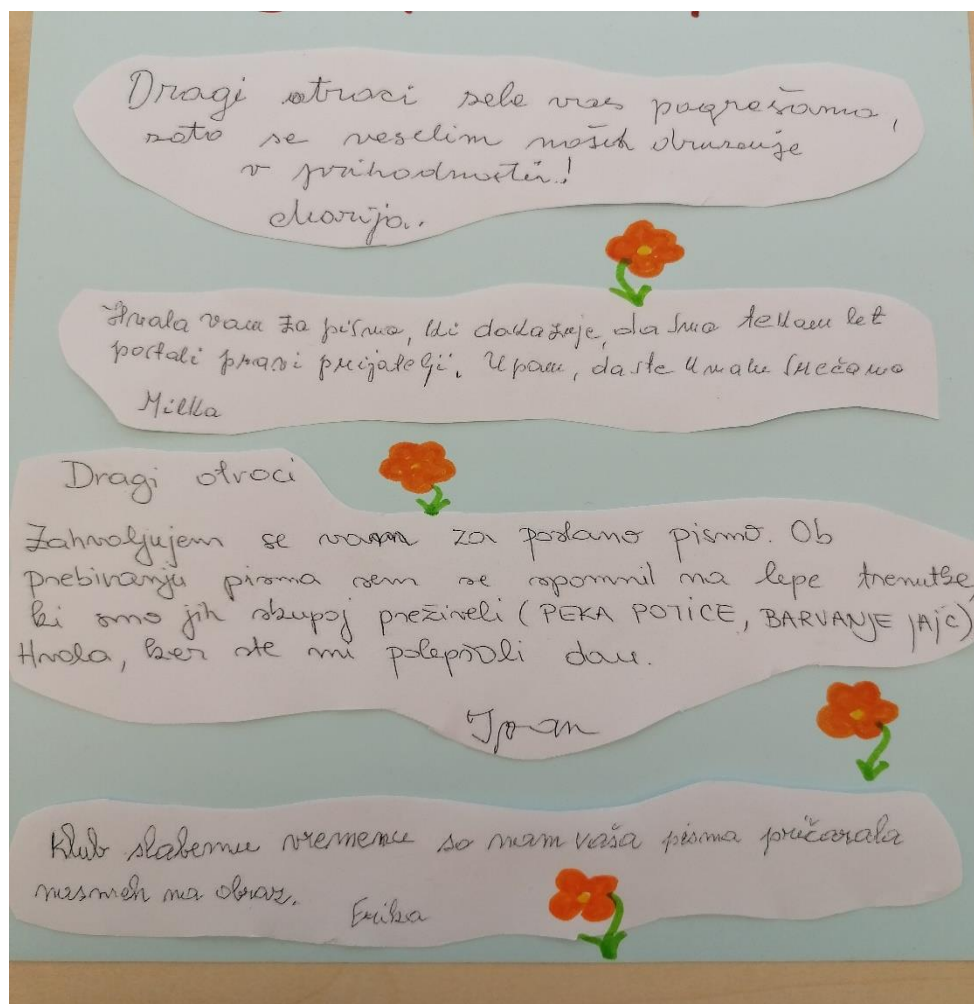 Dragi otroci zelo vas pogrešamo,
zato se veselim naših druženje
v prihodnosti!
Marija.
Hvala vam za pismo, ki dokazuje, da smo tekom let
postali pravi prijatelji. Upam, da ste kmalu srečamo
Milka
Dragi otroci
Zahvaljujem se vam za poslano pismo. Ob
prebiranju pisma sem se spomnil na lepe trenutke,
ki smo jih skupaj preživeli (PEKA POTICE, BARVANJE JAJC)
Hvala, ker ste mi polepšali dan.
Ivan
Kljub slabemu vremenu so nam vaša pisma pričarala
nasmeh na obraz.
Erika